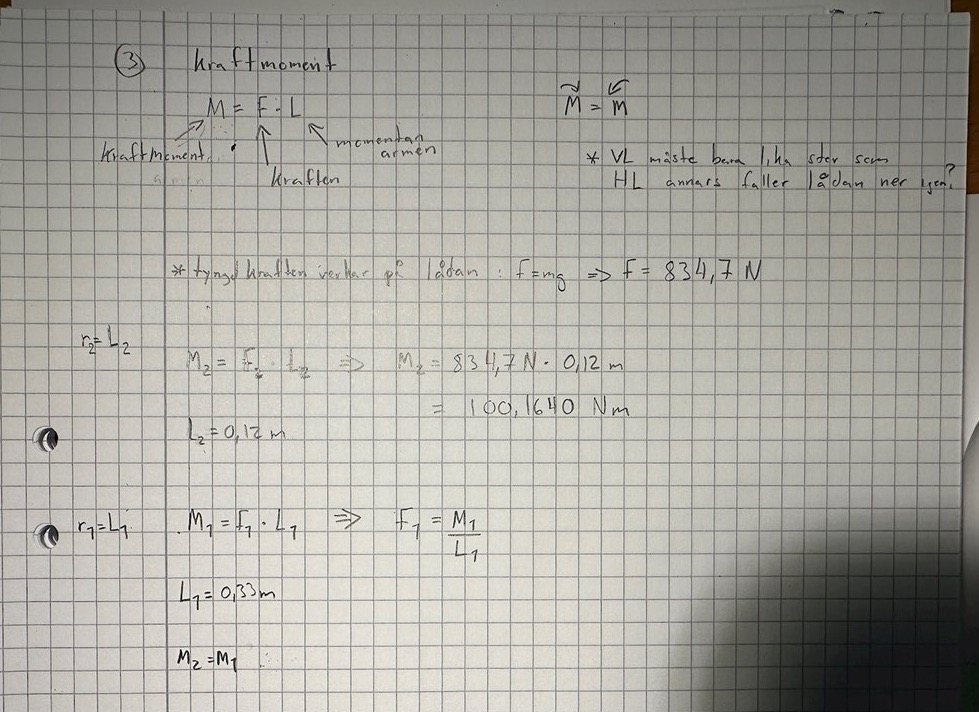 ③ kraftmoment
M = F · L
M = M
kraftmoment
momentan
armen
kraften
* VL måste bara lika stor som
HL annars faller lådan ner igen?
* tyngdkraften verkar på lådan : F=mg => F = 834,7 N
r₂=L₂
M₂ = F₂ · L₂ => M₂ = 834,7 N · 0,12 m
= 100,1640 Nm
L₂ = 0,12 m
r₁=L₁ M₁ = F₁ · L₁ => F₁ = M₁/L₁
L₁ = 0,33m
M₂ = M₁